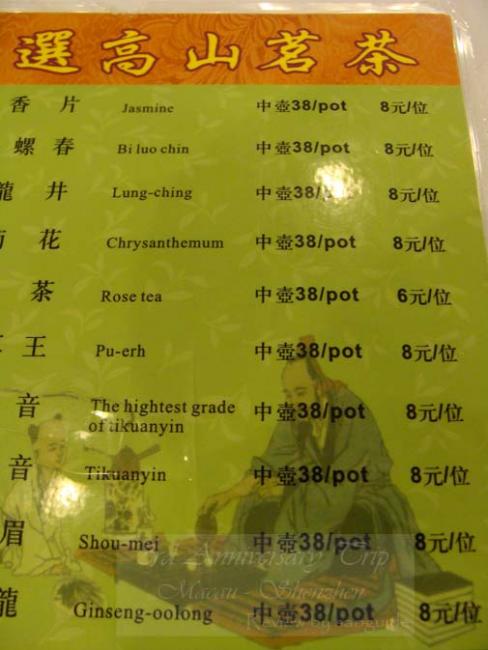 選高山茗茶
香片 Jasmine 中壺38/pot 8元/位
螺春 Bi luo chin 中壺38/pot 8元/位
龍井 Lung-ching 中壺38/pot 8元/位
花 Chrysanthemum 中壺38/pot 8元/位
茶 Rose tea 中壺38/pot 6元/位
王 Pu-erh 中壺38/pot 8元/位
音 The hightest grade of tikuanyin 中壺38/pot 8元/位
音 Tikuanyin 中壺38/pot 8元/位
眉 Shou-mei 中壺38/pot 8元/位
龍 Ginseng-oolong 中壺38/pot 8元/位
Anniversary Trip
Macau - Shenzhen
Review by